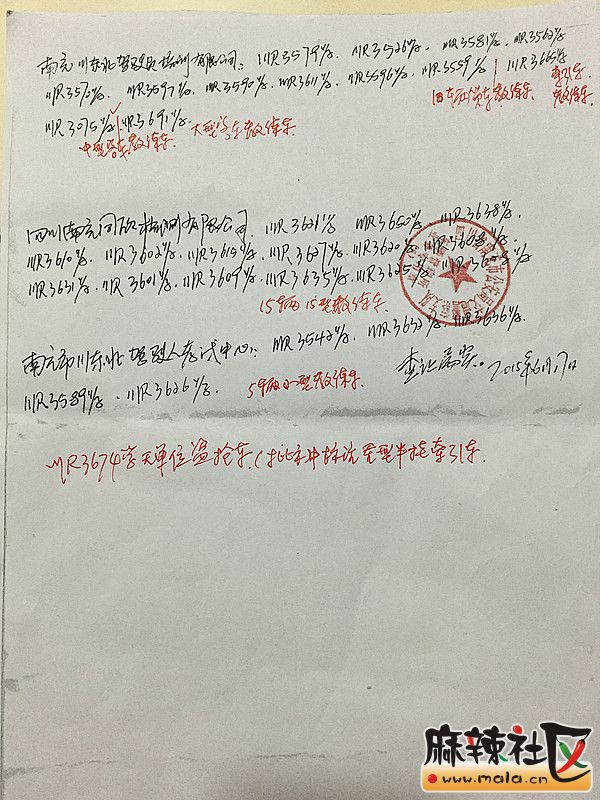 南充川东北驾驶员培训有限公司: 川R3579学. 川R3526学. 川R3581学. 川R3562学
川R3572学. 川R3597学. 川R3590学. 川R3611学. 川R3596学. 川R3559学 川R3665学
牵引车教练车
川R3075学 川R3691学 大型客车教练车
中型客车教练车.
四川南充 检测有限公司. 川R3621学 川R3652学 川R3638学
川R3610学. 川R3602学. 川R3615学. 川R3627学. 川R3620学. 川R3608学
川R3631学. 川R3601学. 川R3609学. 川R3635学. 川R3625学.
15辆小型教练车.
南充市川东北驾驶人考试中心: 川R3542学. 川R3632学. 川R3636学.
川R3589学. 川R3626学. 5辆小型教练车. 查证属实. 2015年6月17日
川R3674学无单位盗抢车.
麻辣社区
www.mala.cn